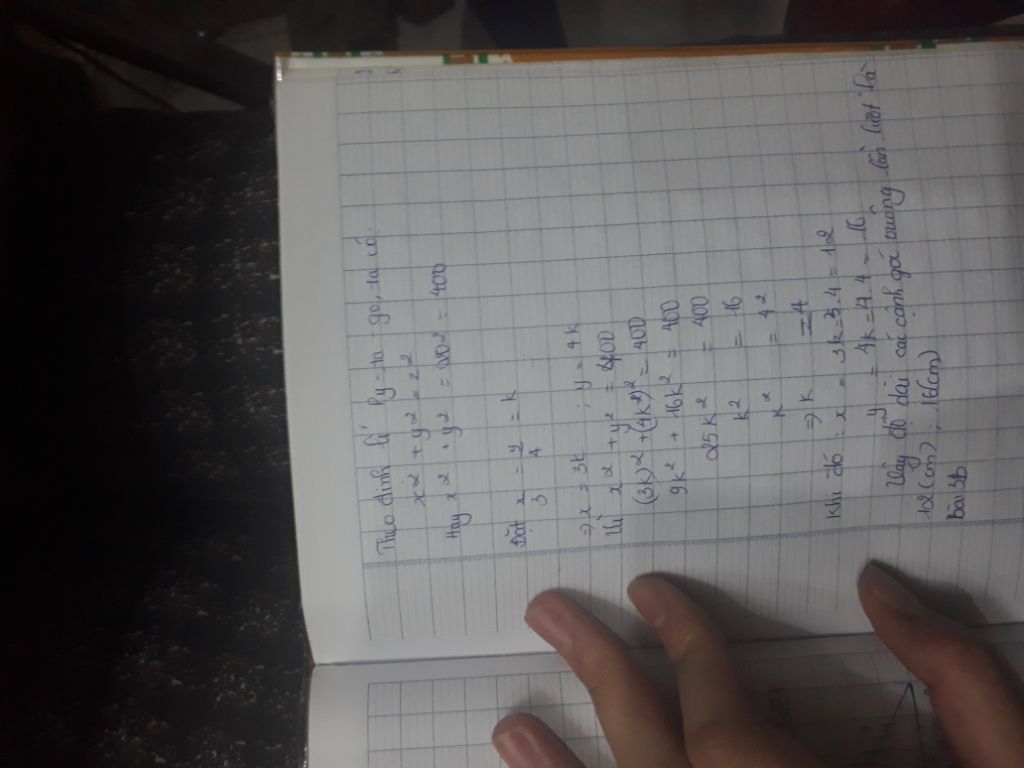 Theo định lí Py-ta go, ta có:
x² + y² = z²
Hay x² + y² = 202 = 400
Đặt x/3 = y/4 = k
=> x = 3k ; y = 4k
Vì x² + y² = 400
(3k)² + (4k²)² = 400
9k² + 16k² = 400
25k² = 400
k² = 16
k² = 4²
=> k = 4
Khi đó: x = 3k = 3.4 = 12
y = 4k = 4.4 = 16
Vậy độ dài các cạnh góc vuông lần lượt là
12(cm) ; 16(cm)
Bài 3b